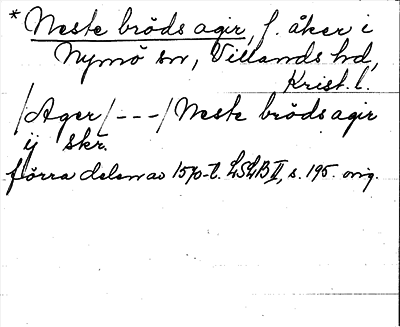 * Neste bröds agir, f. åker i
Nymö sn, Villands hd,
Krist. l.
/Ager/---/Neste bröds agir
ij skr.
förra delen av 1570-t. LSLB II, s. 195. orig.